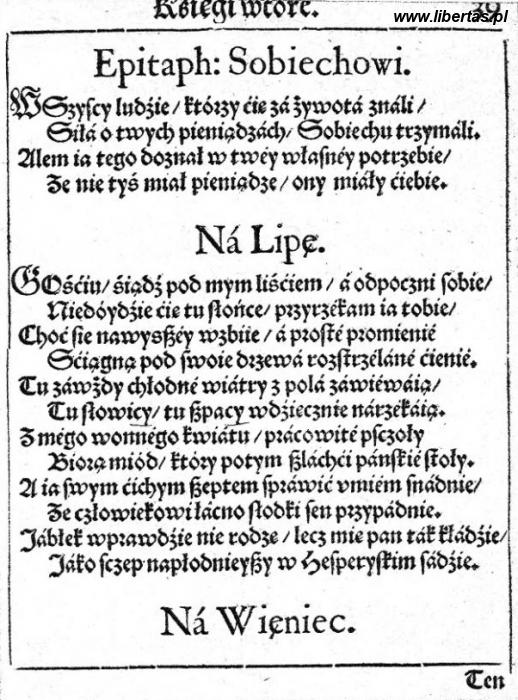 Kśięgi wtóre. 39
www.libertas.pl
Epitaph: Sobiechowi.
WSzyſcy ludźie/ którzy ćie zá żywotá ználi/
Siłá o twych pieniądzách/ Sobiechu trzymáli.
Alem ia tego doznał w twéy właſnéy potrzebie/
Że nie tyś miał pieniądze/ ony miáły ćiebie.
Ná Lipę.
GOśćiu/ śiądź pod mym liśćiem/ á odpoczni ſobie/
Niedóydźie ćie tu słońce/ przyrzékam ia tobie/
Choć ſie nawysſzéy wzbiie/ á proſté promienié
Śćiągną pod ſwoie drzewá rozſtrzéláné ćienié.
Tu záwżdy chłodné wiátry z polá záwiéwáią/
Tu słowicy/ tu ſzpacy wdźiecznie nárzékáią.
Z mégo wonnégo kwiátu/ prácowité pſczoły
Biorą miód/ który potym ſzláchći páńskié stoły.
A ia ſwym ćichym ſzeptem ſpráwić vmiém snádnie/
Że człowiekowi łácno słodki ſen przypádnie.
Jábłek wprawdźie nie rodzę/ lecz mie pan ták kłádźie/
Jáko ſczep napłodnieyſzy w Heſperyſkim ſádźie.
Ná Więniec.
Ten